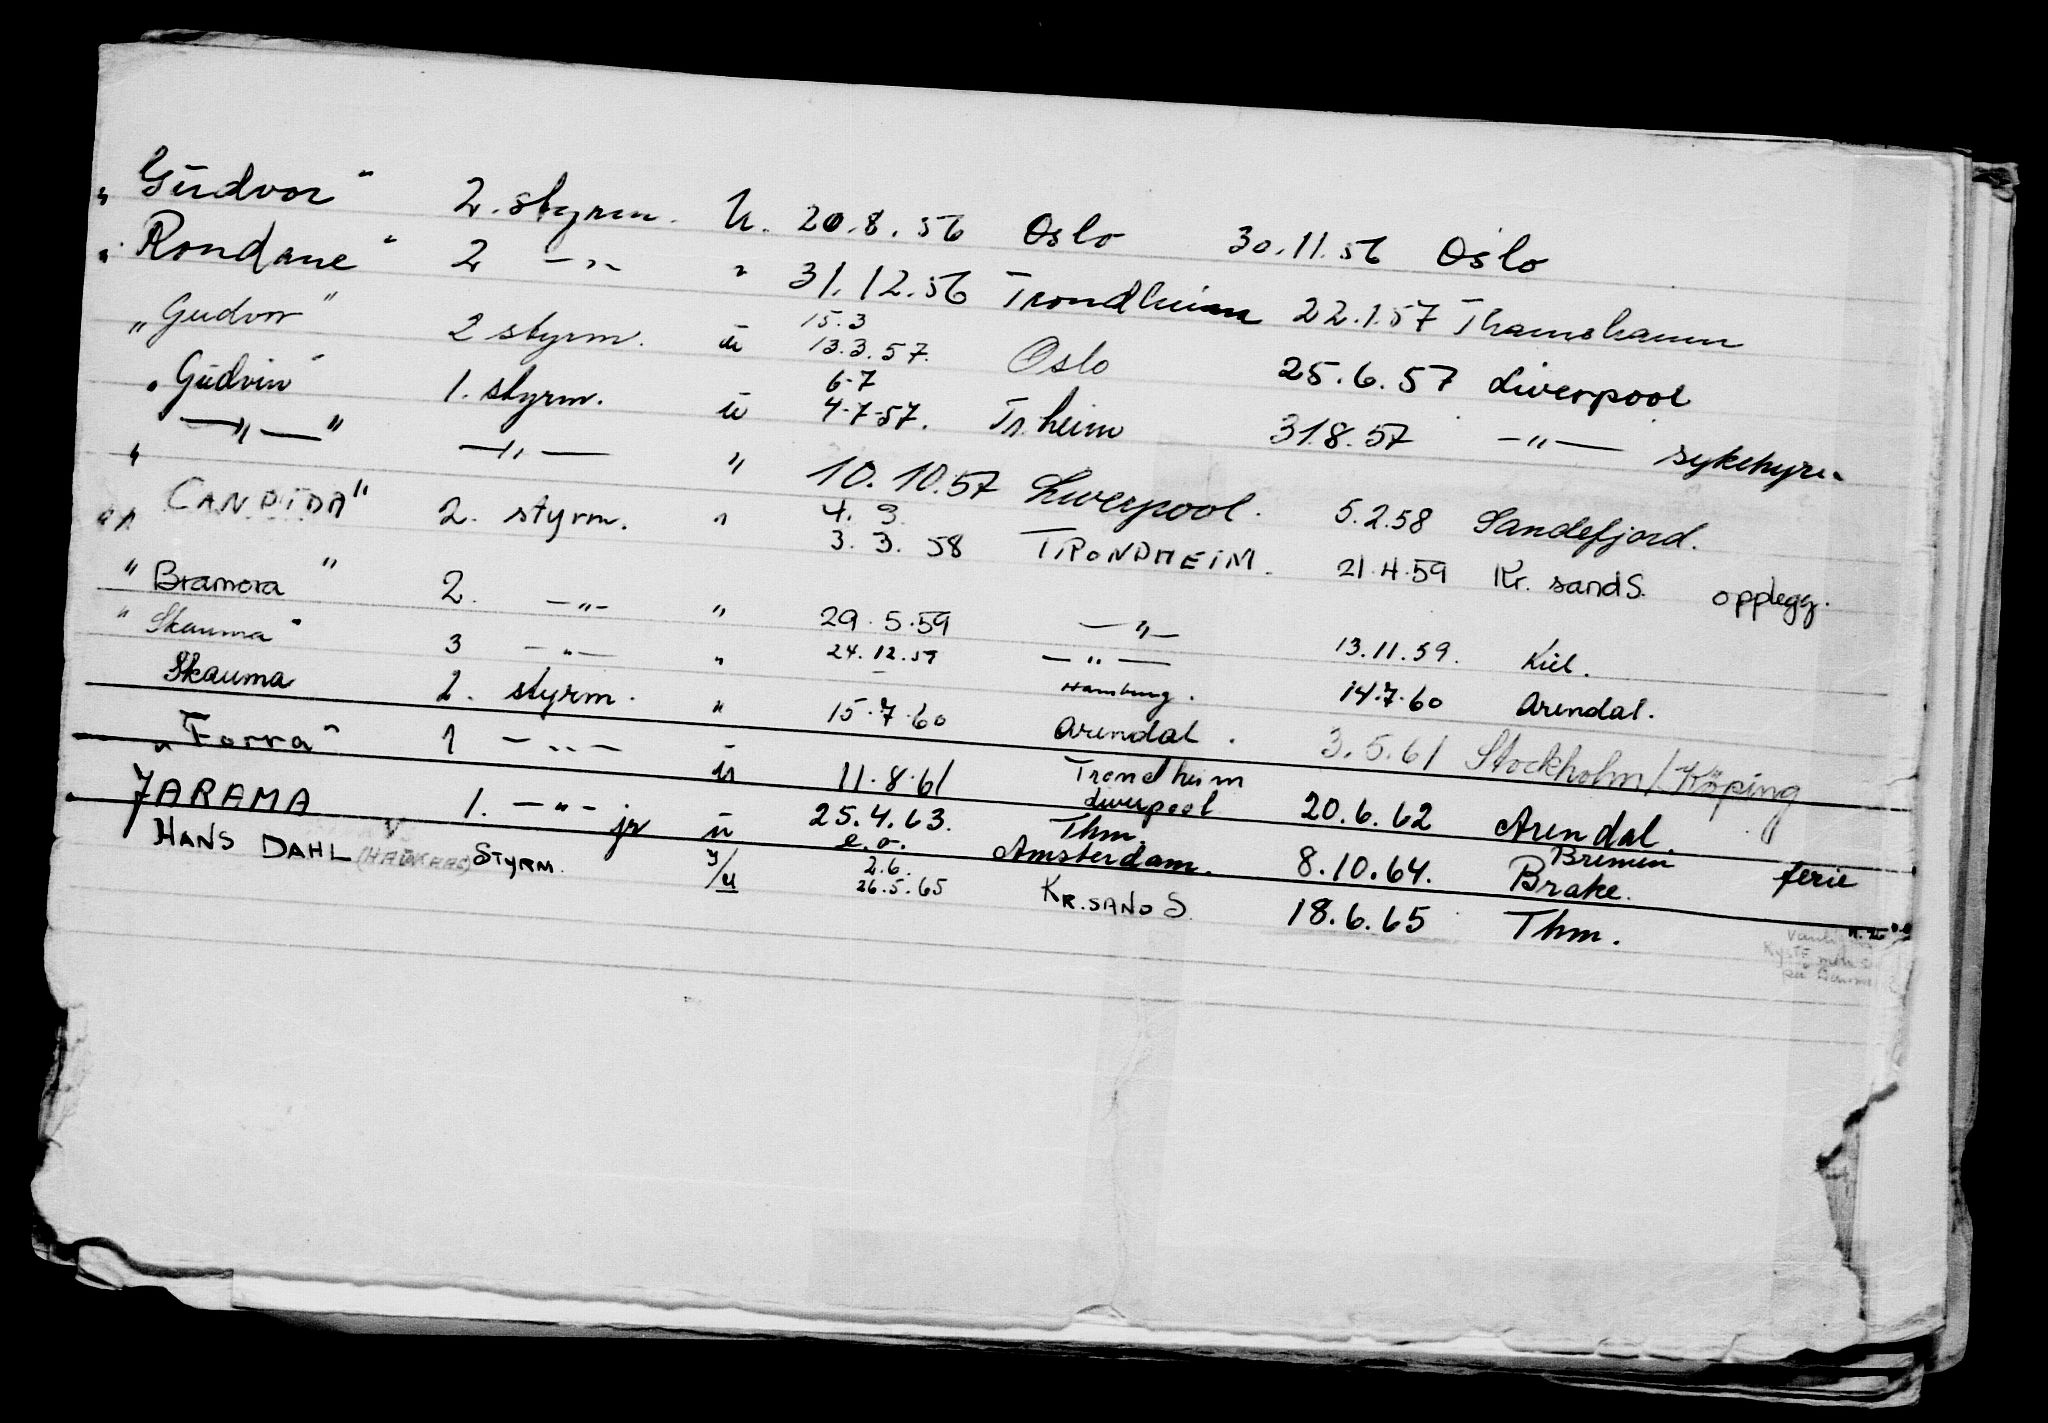 "Gudvor" 2. styrm. u. 20.8.56 Oslo 30.11.56 Oslo
"Rondane" 2 —"— " 31.12.56 Trondheim 22.1.57 Thamshamn
"Gudvor" 2 styrm. u 15.3 13.3.57. Oslo 25.6.57 Liverpool
"Gudvin" 1. styrm. u 6.7 4.7.57. Tr.heim 31.8.57 —"— sykehyre
" —"— " —"— " 10.10.57 Liverpool. 5.2.58 Sandefjord.
"CANDIDA" 2. styrm. " 4.3. 3.3.58 TRONDHEIM. 21.4.59 Kr. sand S. opplegg.
"Bramora" 2. —"— " 29.5.59 —"— 13.11.59. Kiel.
"Skauma" 3 —"— " 24.12.59 —"— 14.7.60 Arendal.
Skauma 2. styrm. " 15.7.60 Hamburg. Arendal. 3.5.61 Stockholm/Köping
"Forra" 1 —"— u 11.8.61 Trondheim Liverpool 20.6.62 Arendal.
JARAMA 1. —"— jr u 25.4.63. e.o. Thm. Amsterdam. 8.10.64. Bremen Brake. ferie
HANS DAHL STYRM. y/u 2.6. 26.5.65 KR.SAND S. 18.6.65 Thm.